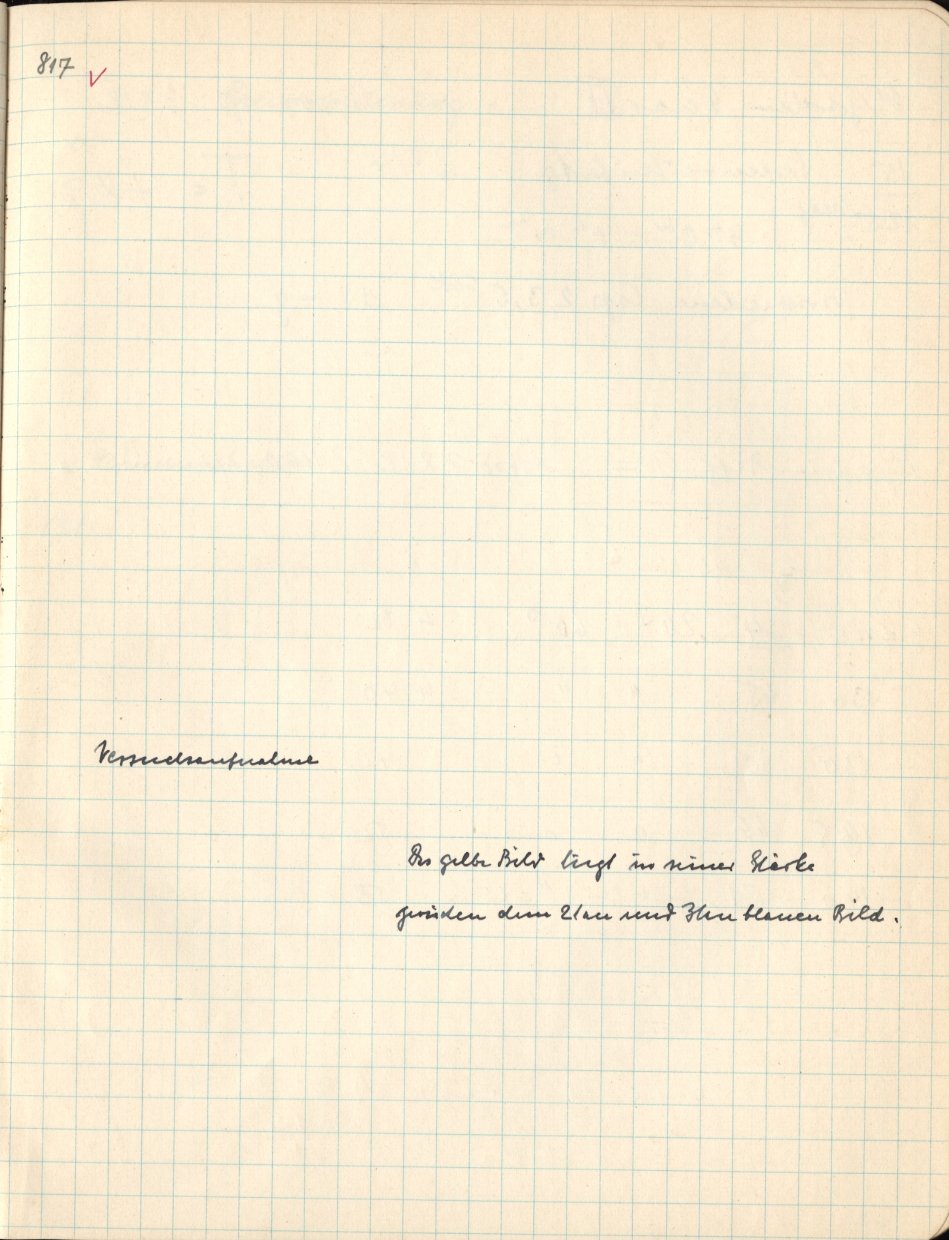 817 ✓
Versuchsaufnahme
Das gelbe Bild liegt in seiner Stärke
zwischen dem 2ten und 3ten blauen Bild.